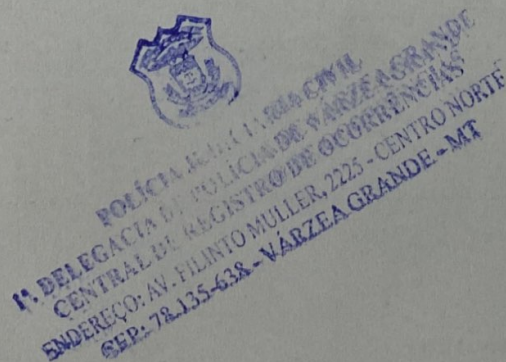 POLÍCIA JUDICIÁRIA CIVIL
1ª DELEGACIA DE POLÍCIA DE VÁRZEA GRANDE
CENTRAL DE REGISTRO DE OCORRÊNCIAS
ENDEREÇO: AV. FILINTO MULLER, 2225 - CENTRO NORTE
CEP: 78.135-638 - VÁRZEA GRANDE - MT